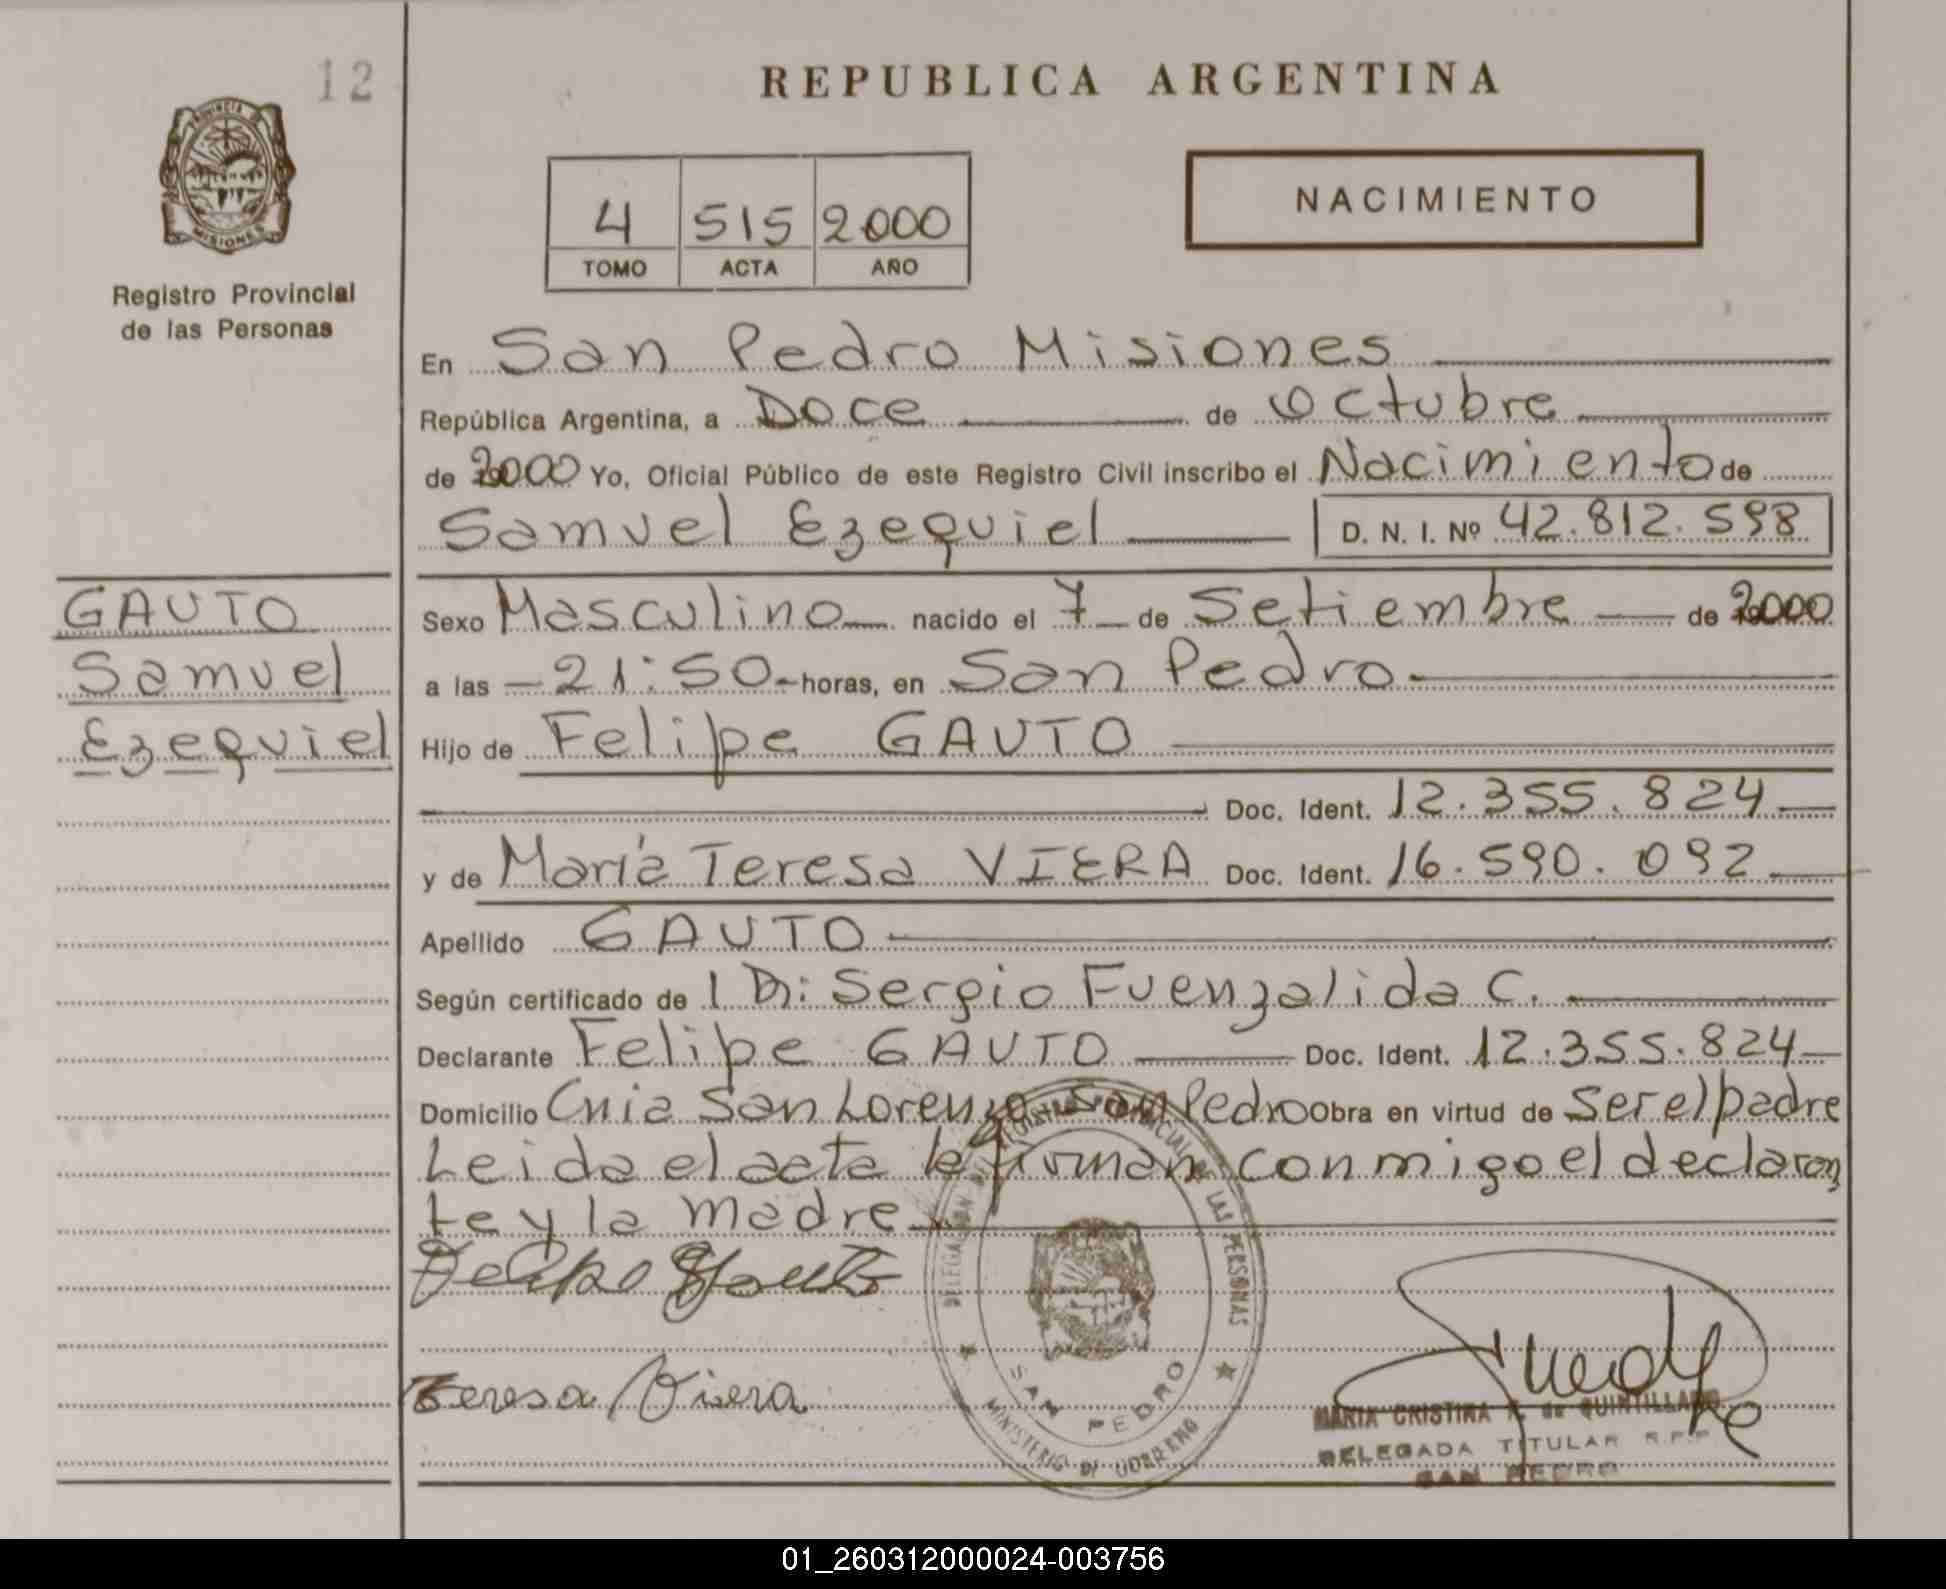 12
REPUBLICA ARGENTINA
PROVINCIA DE
MISIONES
NACIMIENTO
4 515 2000
TOMO ACTA AÑO
Registro Provincial
de las Personas
En San Pedro Misiones
República Argentina, a Doce de Octubre
de 2000 Yo, Oficial Público de este Registro Civil inscribo el Nacimiento de
Samuel Ezequiel D. N. I. Nº 42.812.598
GAUTO
Samuel
Ezequiel
Sexo Masculino nacido el 7 de Setiembre de 2000
a las 21:50 horas, en San Pedro
Hijo de Felipe GAUTO
Doc. Ident. 12.355.824
y de María Teresa VIERA Doc. Ident. 16.590.092
Apellido GAUTO
Según certificado de Dr: Sergio Fuenzalida C.
Declarante Felipe GAUTO Doc. Ident. 12.355.824
Domicilio Cnia San Lorenzo San Pedro Obra en virtud de Ser el padre
Leida el acta la firman conmigo el declaran
te y la madre
Felipe Gauto
Teresa Viera
DELEGACION DEL REGISTRO PROVINCIAL DE LAS PERSONAS
SAN PEDRO
MINISTERIO DE GOBIERNO
MARIA CRISTINA R. de QUINTILLANO
DELEGADA TITULAR R.P.P.
SAN PEDRO
01_260312000024-003756